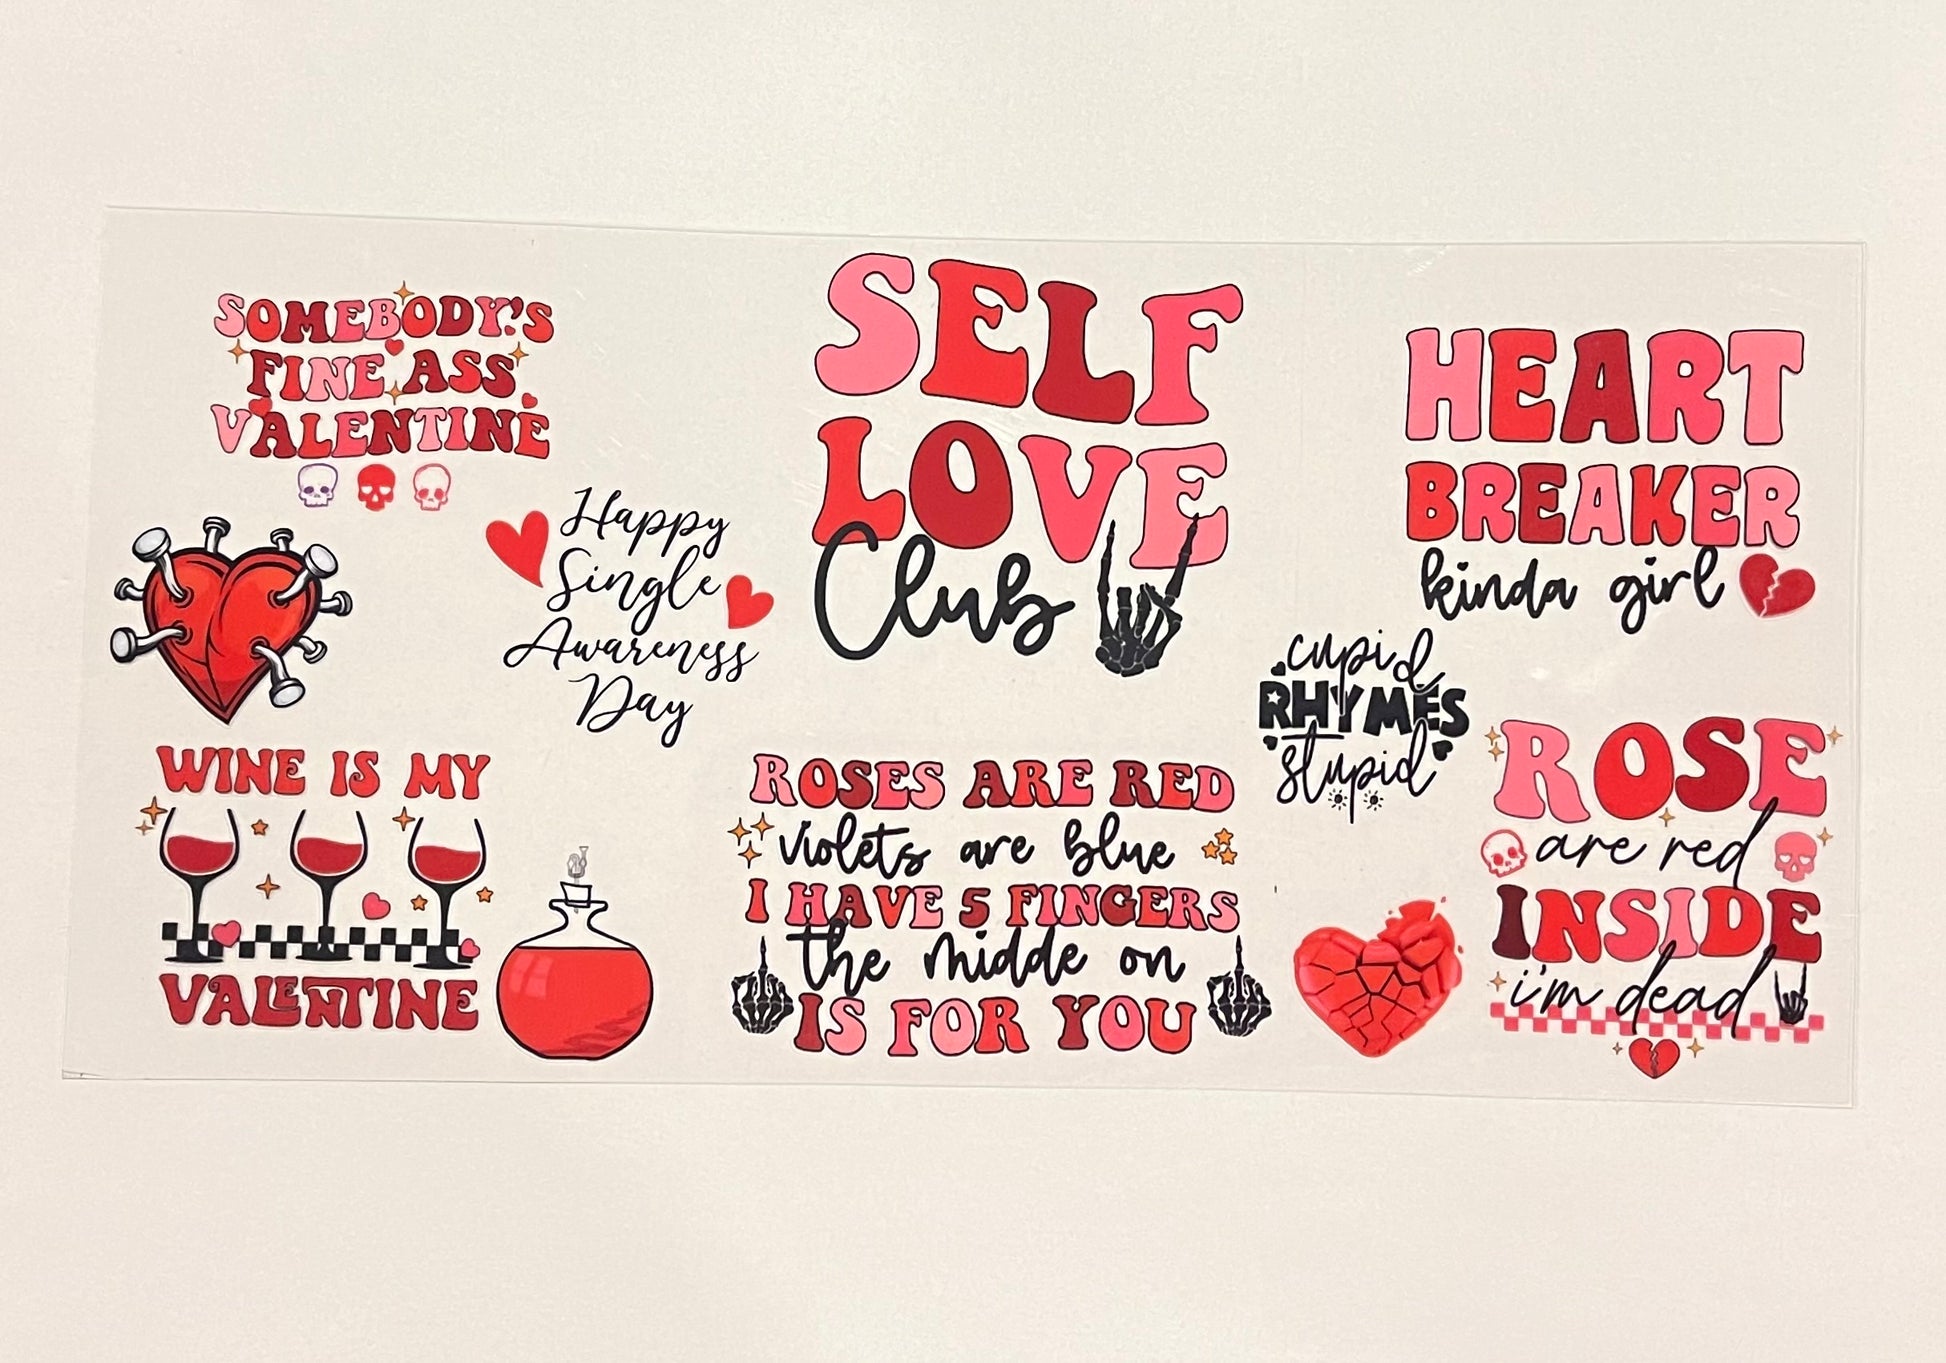 SOMEBODY'S
FINE ASS
VALENTINE
Happy
Single
Awareness
Day
WINE IS MY
VALENTINE
SELF
LOVE
Club
ROSES ARE RED
violets are blue
I HAVE 5 FINGERS
the midde on
IS FOR YOU
HEART
BREAKER
kinda girl
cupid
RHYMES
stupid
ROSE
are red
INSIDE
i'm dead